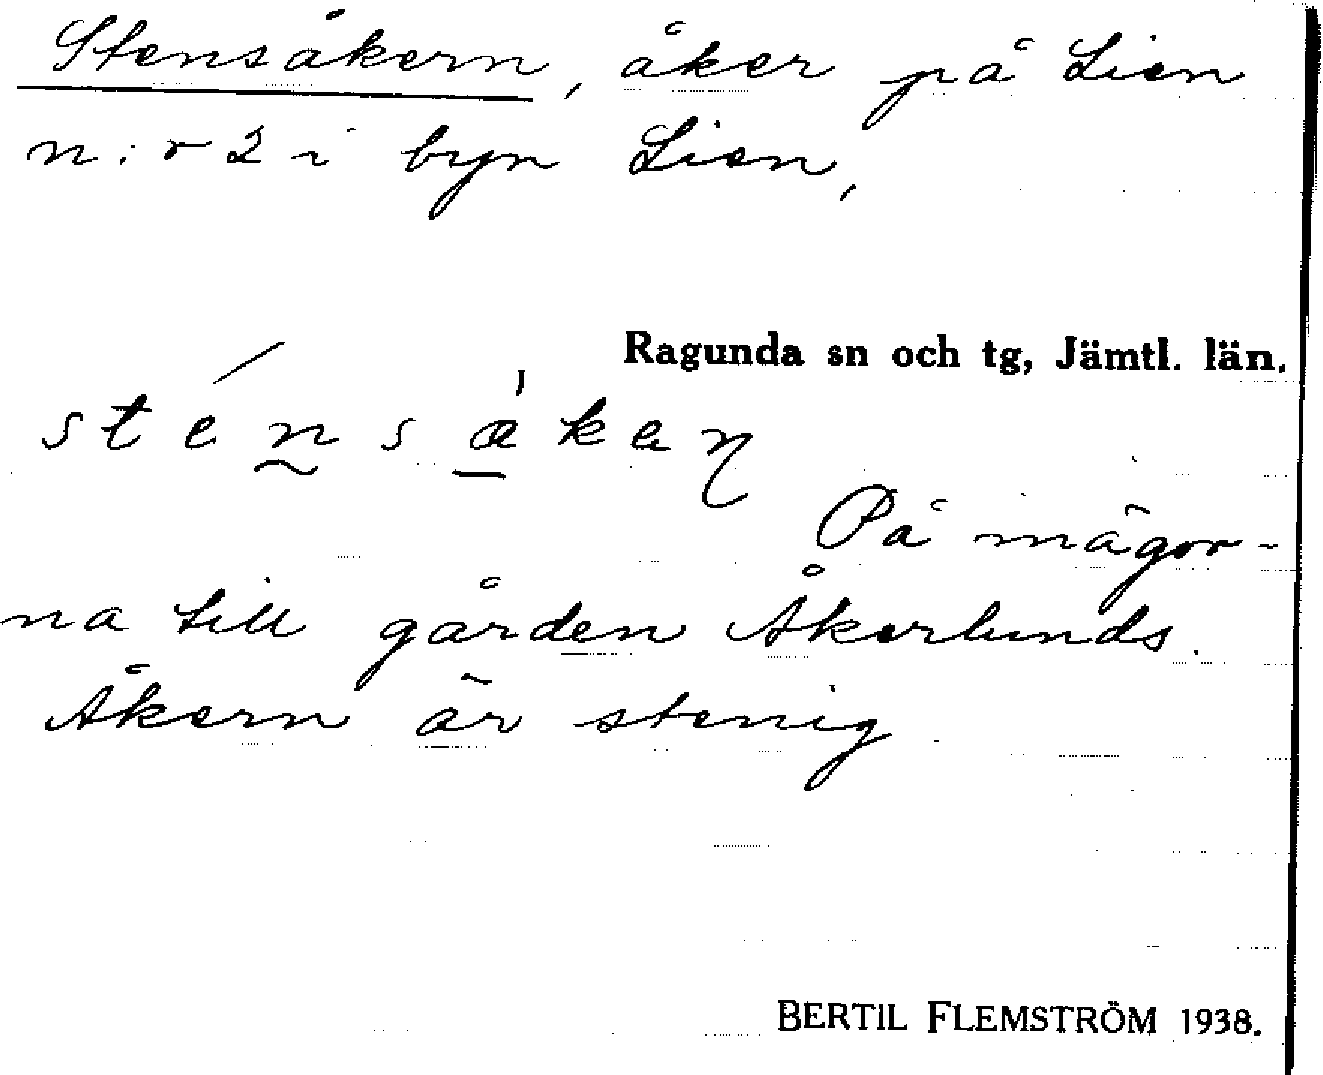 Stensåkern, åker på Lien
n:r 2 i byn Lien,
Ragunda sn och tg, Jämtl. län.
På mägor-
na till gården Åkerlunds.
Åkern är stenig.
BERTIL FLEMSTRÖM 1938.